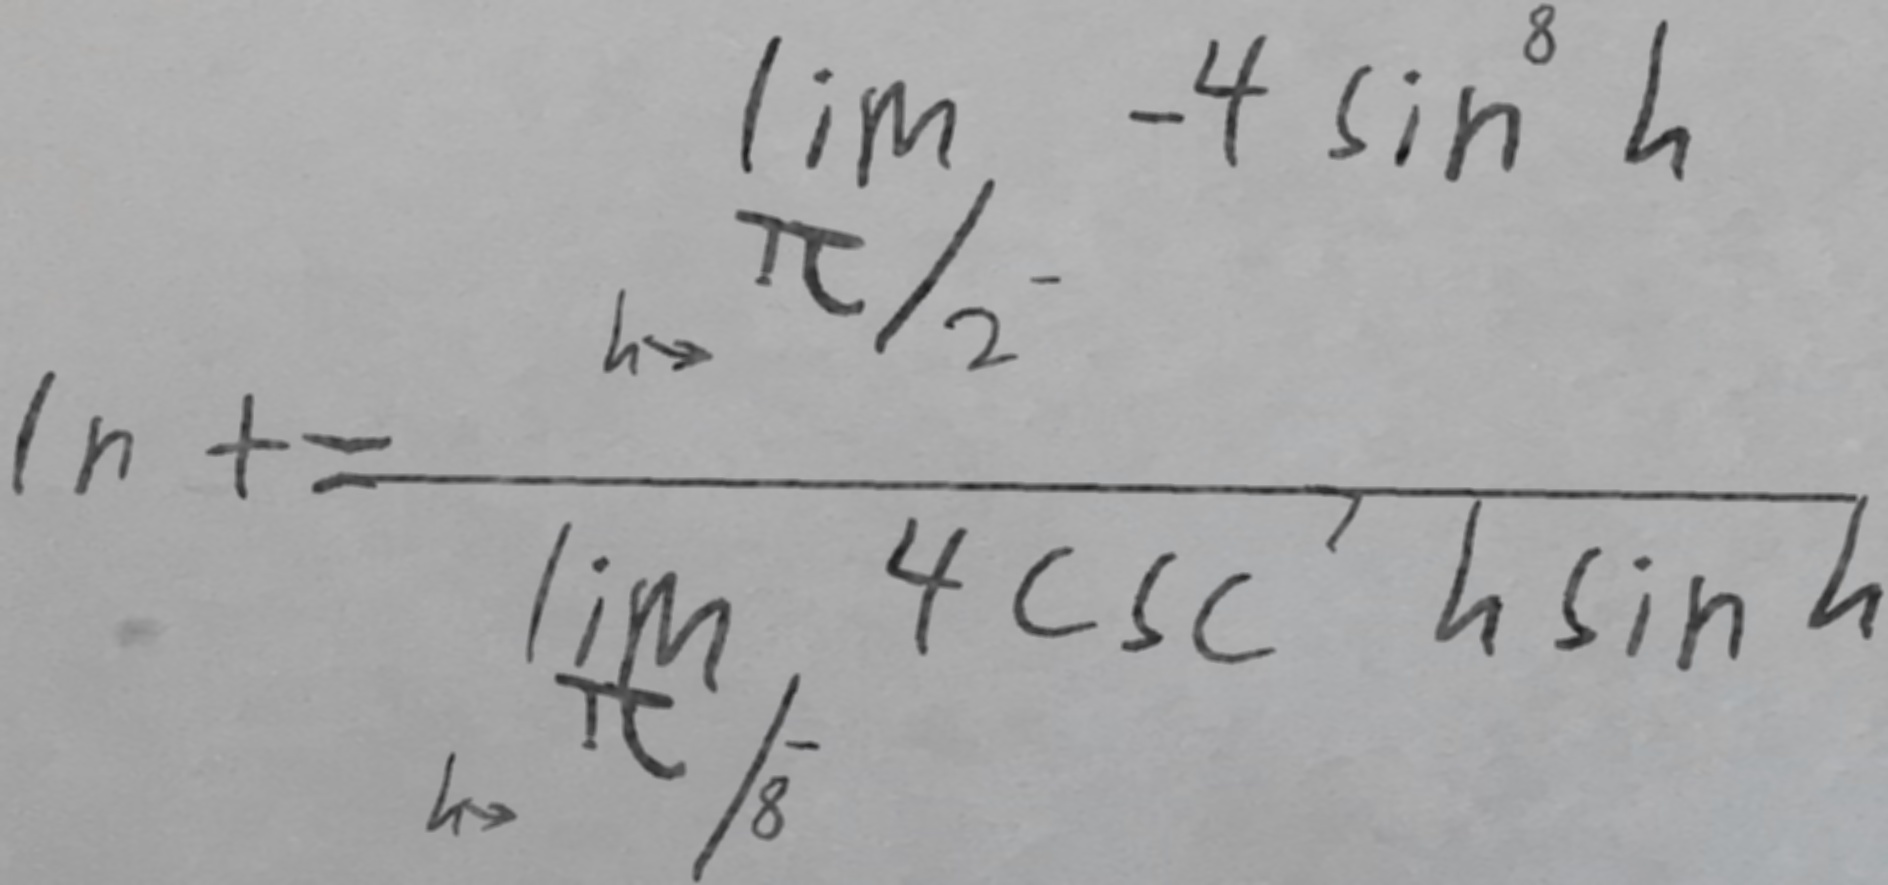 \ln t = \frac{\lim_{h \to \pi/2^-} -4 \sin^8 h}{\lim_{h \to \pi/8^-} 4 \csc' h \sin h}